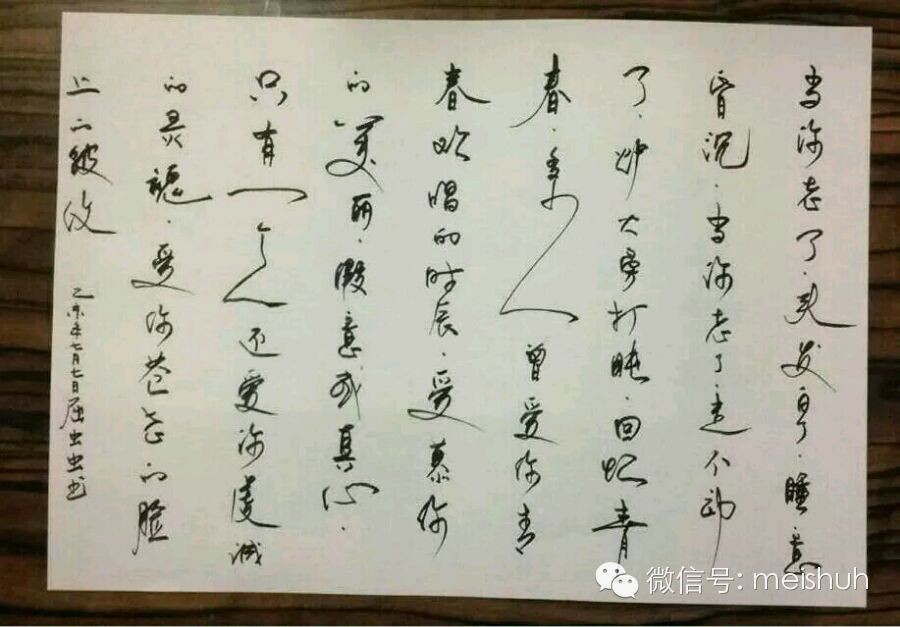 当你老了，头发白了，睡意
昏沉，当你老了，走不动
了，炉火旁打盹，回忆青
春，多少人曾爱你青
春欢唱的时辰，爱慕你
的美丽，假意或真心，
只有一个人还爱你虔诚
的灵魂，爱你苍老的脸
上的皱纹
乙未年七月七日屈虫虫书
微信号: meishuh